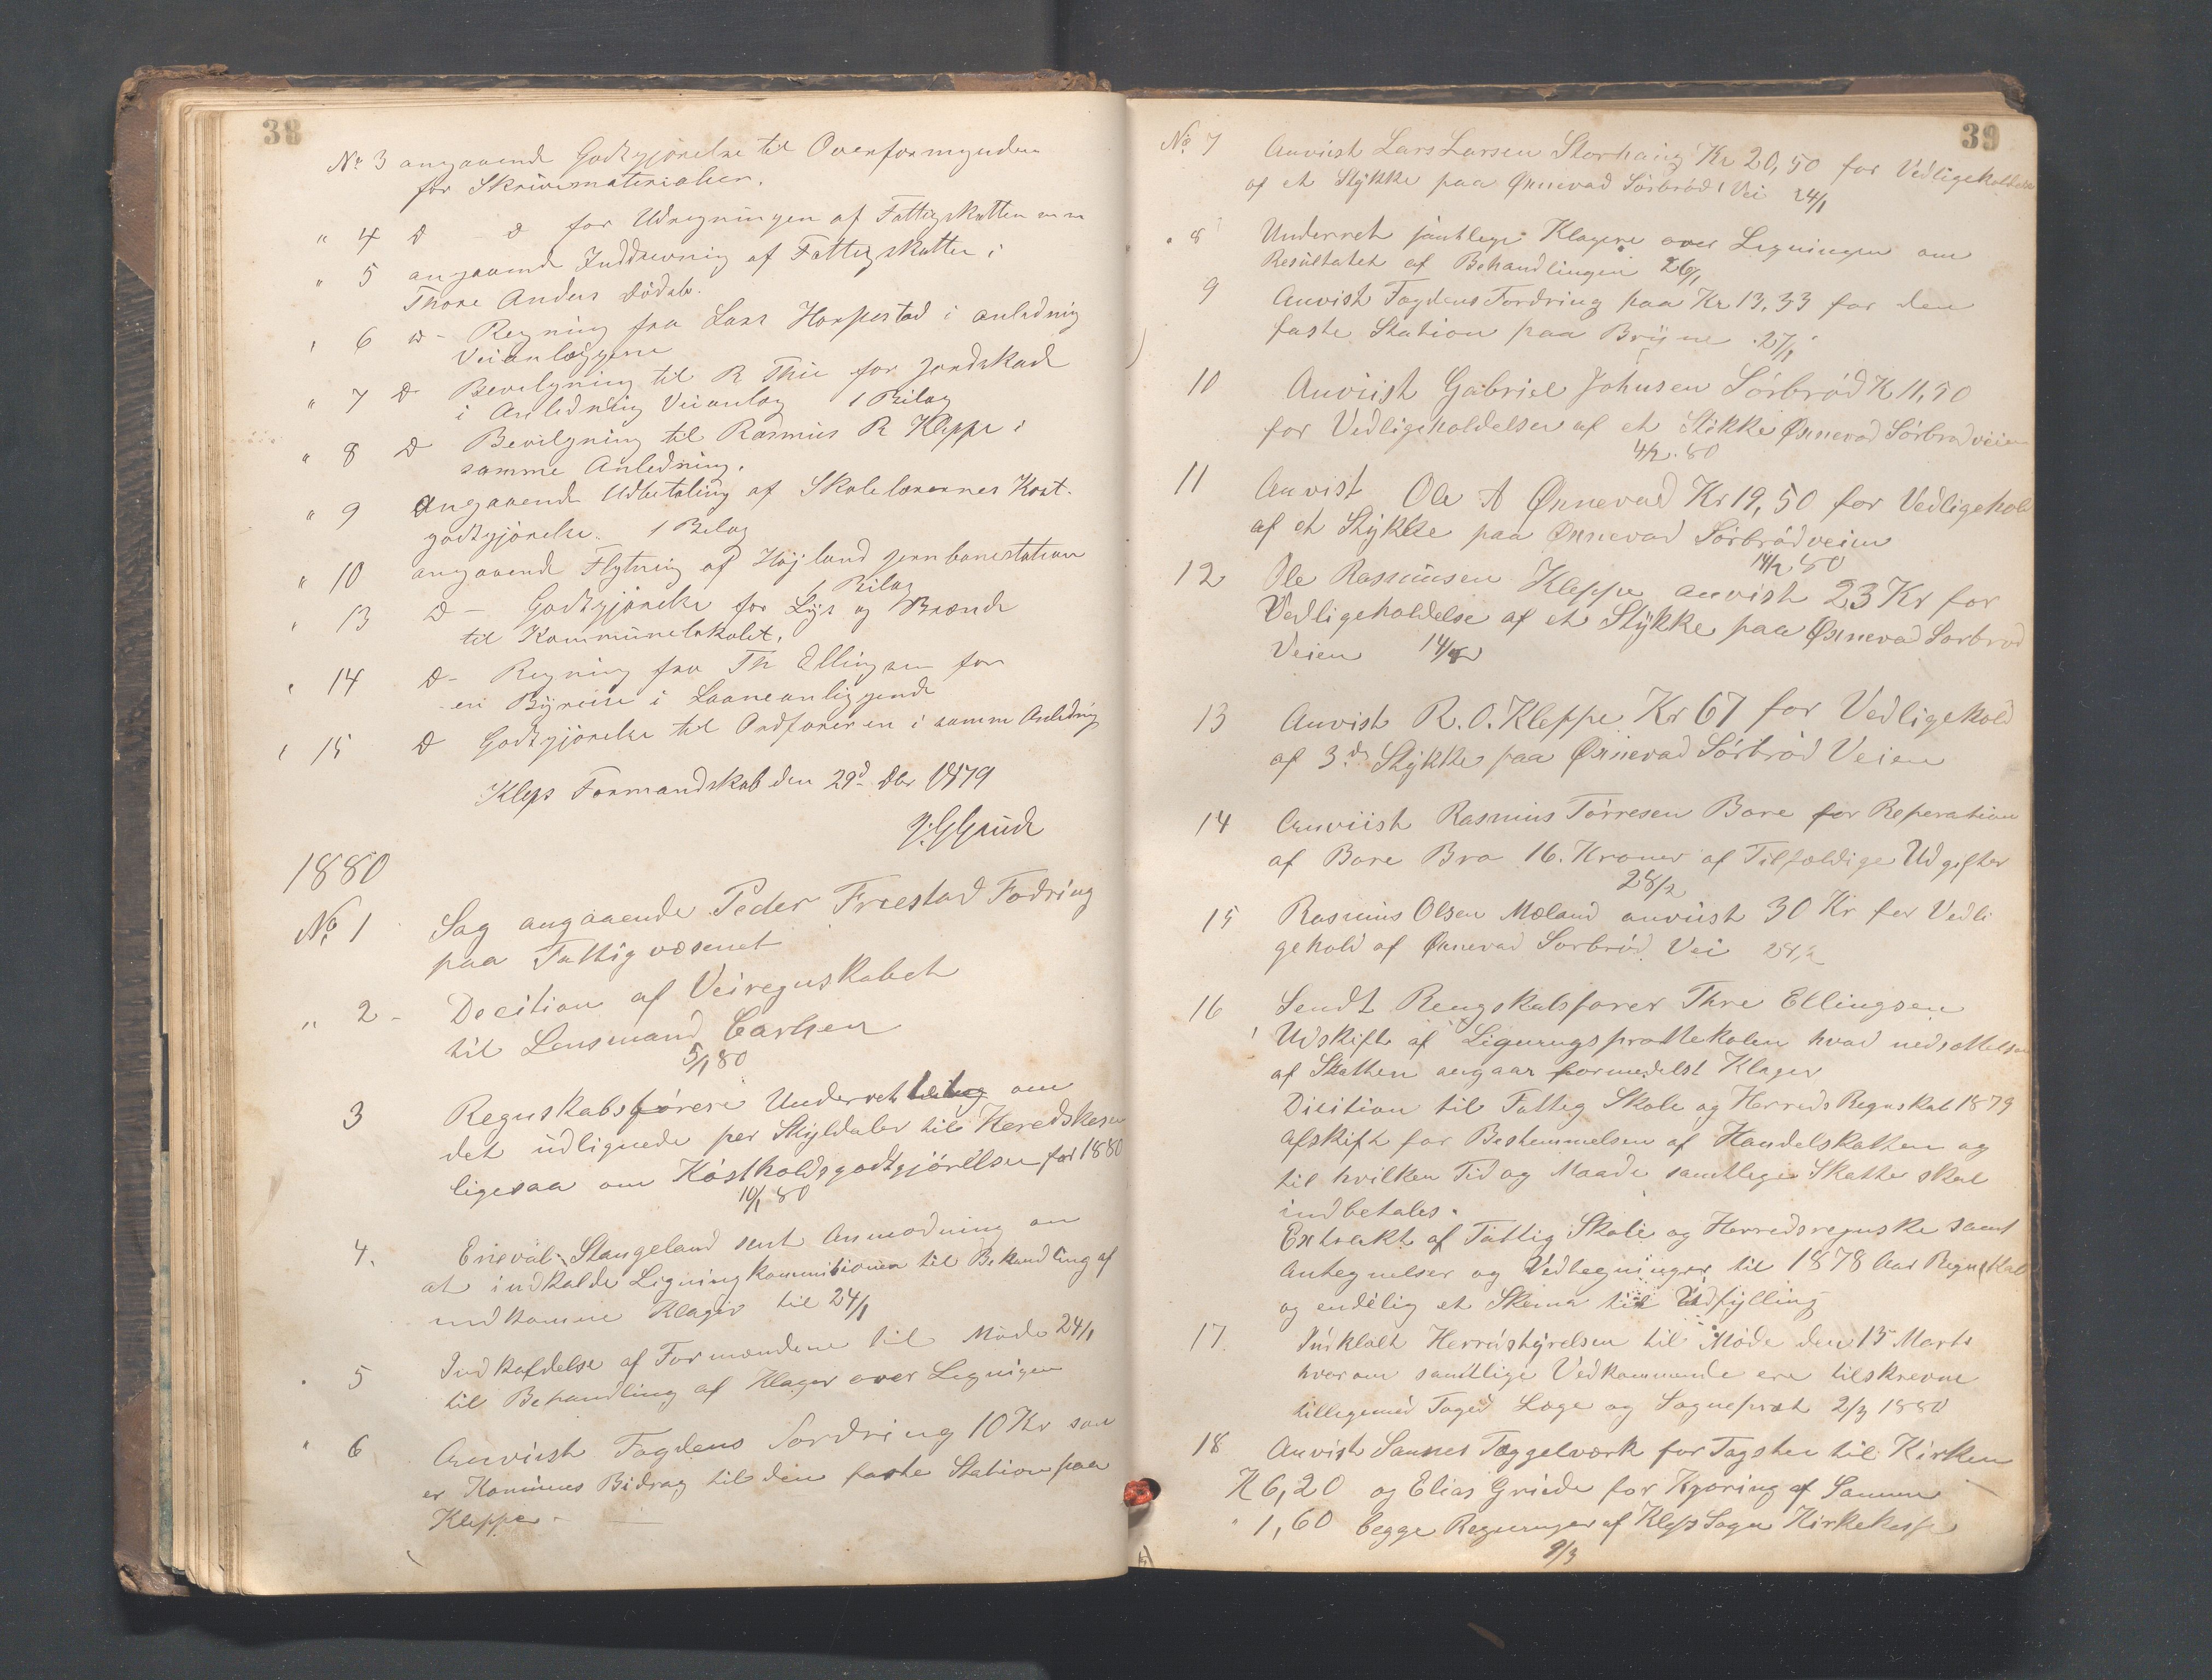 38
No 3 angaaende Godtgjörelse til Overformynderen
for Skrivematerialier.
" 4 D D for Udregningen af Fattigskatten m m
" 5 angaaende Inddrivning af Fattigskatten i
Thore Anders Dödsb.
" 6 D - Regning fra Lars Horpestad i anledning
Veianlæggene
" 7 D Bevilgning til R Thu for Jordskade
i Anledning Veianlæg 1 Bilag
" 8 D Bevilgning til Rasmus R Kleppe i
samme Anledning.
" 9 Angaaende Udbetaling af Skolelærernes Kost-
godtgjörelse. 1 Bilag
" 10 angaaende Flytning af Højland Jernbanestation
1 Bilag
" 13 D - Godtgjörelse for Lys og Brænde
til Kommunelokalet.
" 14 D - Regning fra Th Ellingsen for
en Byreise i Laaneanliggende
" 15 D Godtgjörelse til Ordföreren i samme Anledning
Klep Formandskab den 29d Dbr 1879
J. G Grude
1880
No 1 Sag angaaende Peder Friestad Fodring
paa Fattigvæsenet
" 2 - Decition af Veiregnskabet
til Lensmand Carlsen
5/1 80
3 Regnskabsförere Underret om
det udlignede per Skyldaler til Heredskassen
ligesaa om Kostholdsgodtgjörelsen for 1880
10/1 80
4. Enevald Stangeland sent Anmodning om
at indkalde Ligningkommitionen til Behandling af
indkomne Klager til 24/1
5 Indkaldelse af Formændene til Möde 24/1
til Behandling af Klager over Ligningen
" 6 Anviist Fogdens Fordring 10 Kr som
er Kommunes Bidrag til den faste Station paa
Kleppe -
39
No 7 Anviist Lars Larsen Storhaug Kr 20,50 for Vedligeholdelse
af et Stykke paa Ønnevad Sörbröd Vei 24/1
" 8 Underret samtlege Klagere over Ligningen om
Resultatet af Behandlingen 26/1
9 Anvist Fogdens Fordring paa Kr 13,33 for den
faste Station paa Bryne 27/1
10 Anviist Gabriel Johnsen Sörbröd K 11,50
for Vedligeholdelsen af et Stikke Ønnevad Sörbrødveien
4/2 80
11 Anvist Ole A Ønnevad Kr 19,50 for Vedligehold
af et Stykke paa Ønnevad Sörbrödveien
14/2 80
12 Ole Rasmusen Kleppe anvist 23 Kr for
Vedligeholdelse af et Stykke paa Ønnevad Sorbröd
Veien 14/2
13 Anvist R. O. Kleppe Kr 67 for Vedligehold
af 3de Stykke paa Ønnevad Sörbröd Veien
14 Anviist Rasmus Törresen Bore for Reperation
af Bore Bro 16. Kroner af Tilfældige Udgifter
28/2
15 Rasmus Olsen Mæland anviist 30 Kr for Vedli
gehold af Ønnevad Sorbröd Vei 28/2
16 Sendt Rengskabsförer Thre Ellingsen
Udskift af Ligningsprottekolen hvad nedsættelsen
af Skatten angaar formedelst Klager
Dicition til Fattig Skole og Herreds Regnskab 1879
Afskift for Bestemmelsen af Handelskatten og
til hvilken Tid og Maade samtlege Skatte skal
indbetales.
Extrakt af Fattig Skole og Herredsregnske samt
Antegnelser og Vedtegninger til 1878 Aars Regnskab
og endelig et Skema til Udfylling
17. Indkaldt Herredstyrelsen til Möde den 15 Marts
hvorom samtlige Vedkommende ere tilskrevne
tilligemed Foged Læge og Sogneprest 2/3 1880
18 Anvist Sannes Tæggelværk for Tagsten til Kirken
K 6,20 og Elias Grude for Kjöring af Samme
" 1,60 begge Regninger af Klep Sogns Kirkekasse
9/3